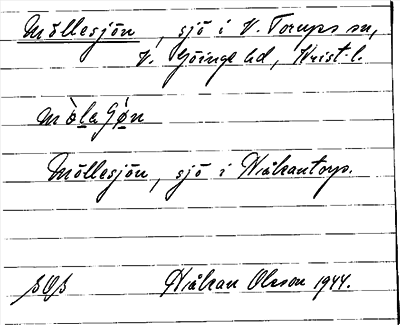 Möllesjön, sjö i V. Torups sn,
V. Göinge hd, Krist. l.
Möllesjön, sjö i Håkantorp.
Håkan Olsson 1944.